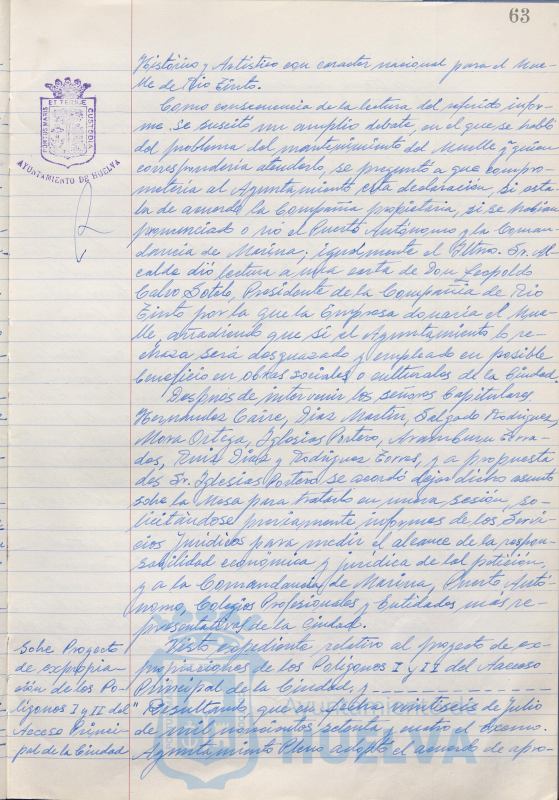 63
Histórico y Artístico con caracter nacional para el Mue-
lle de Rio Tinto.
Como consecuencia de la lectura del referido infor-
me, se suscitó un amplio debate, en el que se habló
del problema del mantenimiento del Muelle y quien
correspondería atenderlo, se preguntó a que compro-
metería al Ayuntamiento esta declaración, si esta-
ba de acuerdo la Compañía propietaria, si se habían
pronunciado o no el Puerto Autónomo y la Coman-
dancia de Marina; igualmente el Iltmo. Sr. Al-
calde dió lectura a una carta de Don Leopoldo
Calvo Sotelo, Presidente de la Compañía de Rio
Tinto por la que la Empresa donaría el Mue-
lle, añadiendo que si el Ayuntamiento lo re-
chaza será desguazado y empleado en posible
beneficio en obras sociales o culturales de la Ciudad.
Después de intervenir los señores Capitulares
Hernández Caire, Diaz Martín, Salgado Rodriguez,
Mora Ortega, Iglesias Portero, Aramburu Terra-
des, Ruiz Diaz y Rodriguez Torras, y a propuesta
del Sr. Iglesias Portero se acordó dejar dicho asunto
sobre la Mesa para tratarlo en nueva sesión, so-
licitándose previamente informes de los Servi-
cios Jurídicos para medir el alcance de la respon-
sabilidad económica y jurídica de tal petición,
y a la Comandancia de Marina, Puerto Autó-
nomo, Colegios Profesionales y Entidades más re-
presentativas de la Ciudad.
Sobre Proyecto
de expropia-
ción de los Po-
lígonos I y II del
Acceso Princi-
pal de la Ciudad
Visto expediente relativo al proyecto de ex-
propiaciones de los Polígonos I y II del Acceso
Principal de la Ciudad, y
Resultando que en fecha veintiseis de julio
de mil novecientos setenta y cuatro el Excmo.
Ayuntamiento Pleno adoptó el acuerdo de apro-
PORTUS MARIS
ET TERRAE
CUSTODIA
AYUNTAMIENTO DE HUELVA
HUELVA